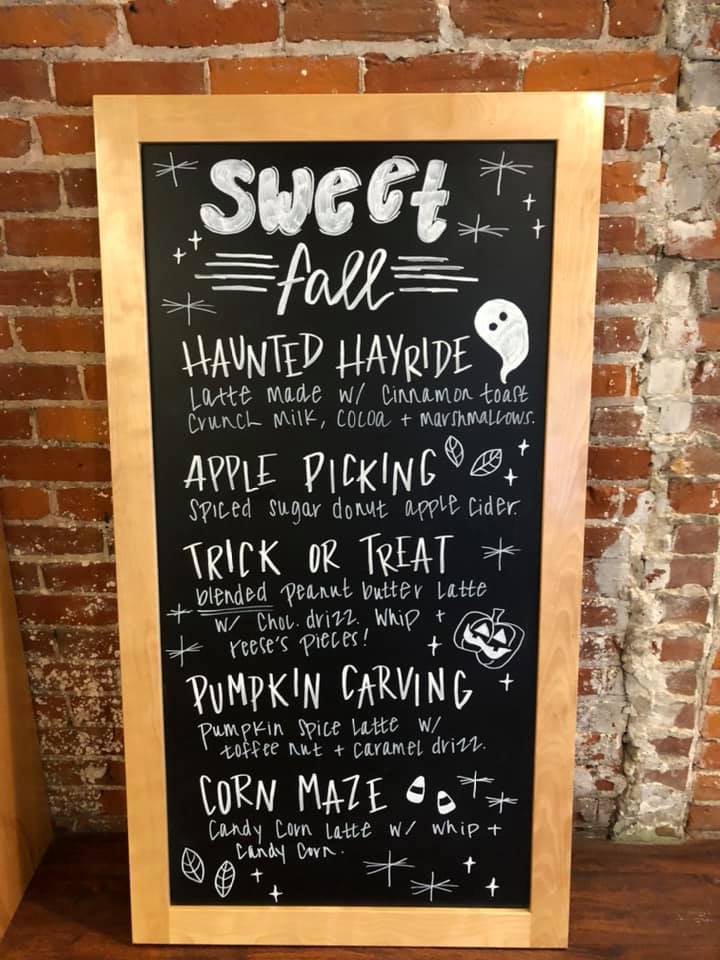 Sweet
fall
HAUNTED HAYRIDE
Latte made w/ Cinnamon toast
Crunch Milk, Cocoa + marshmallows.
APPLE PICKING
Spiced sugar donut apple Cider.
TRICK OR TREAT
blended peanut butter Latte
w/ Choc. drizz. Whip +
reese's pieces!
PUMPKIN CARVING
Pumpkin Spice Latte w/
toffee nut + Caramel drizz.
CORN MAZE
Candy Corn Latte w/ whip +
Candy Corn.